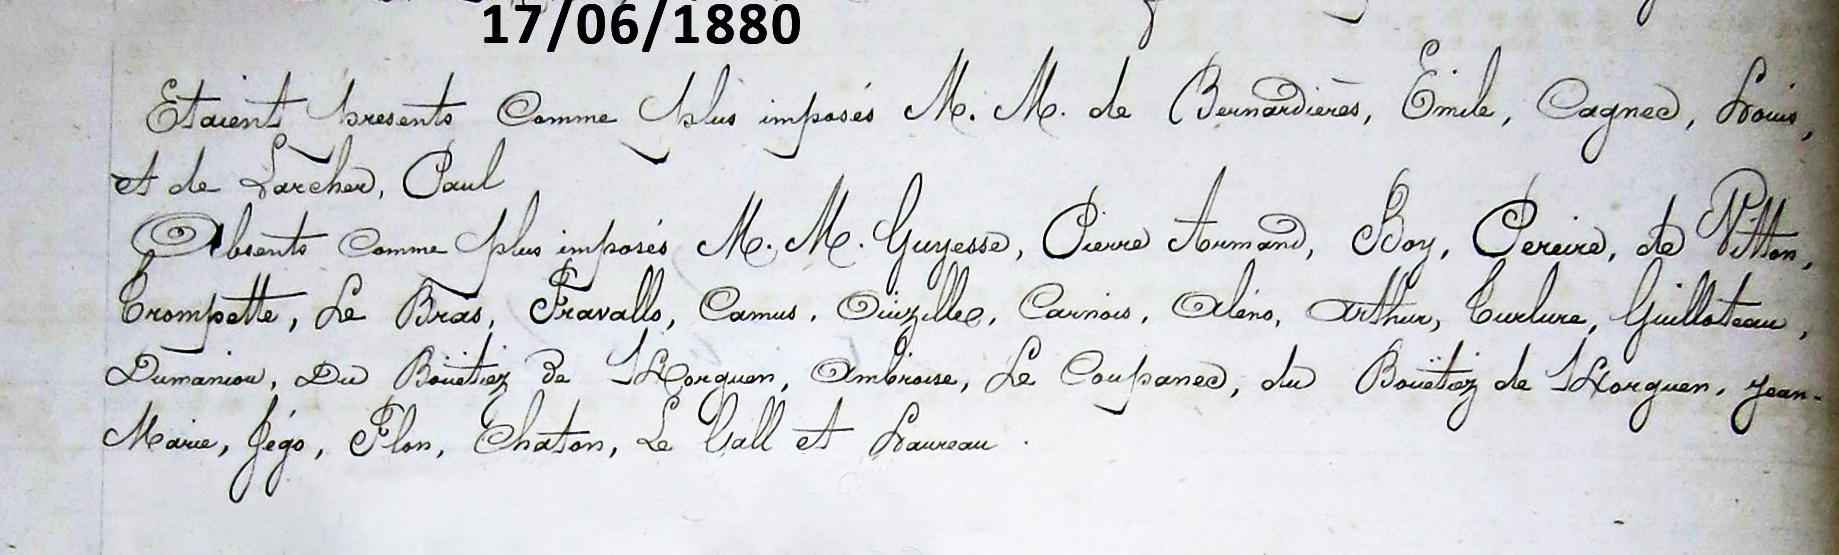 17/06/1880
Etaient présents comme plus imposés M. M. de Bernardières, Emile, Cagnec, Louis,
et de Larcher, Paul
Absents comme plus imposés M. M. Guyesse, Pierre Armand, Boy, Pereire, de Vitton,
Trompette, Le Bras, Fravallo, Camus, Ouizille, Carnois, Aléno, Arthur, Turlure, Guilloteau,
Dumaniou, Du Bouëtiez de Kerorguen, Ambroise, Le Coupanec, du Bouëtiez de Kerorguen, Jean-
Marie, Jégo, Flon, Chaton, Le Gall et Laureau.